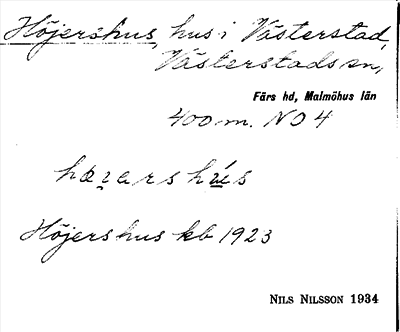 Höjershus, hus i Västerstad,
Västerstads sn,
Färs hd, Malmöhus län
400 m. NO 4
Höjershus kb 1923
NILS NILSSON 1934